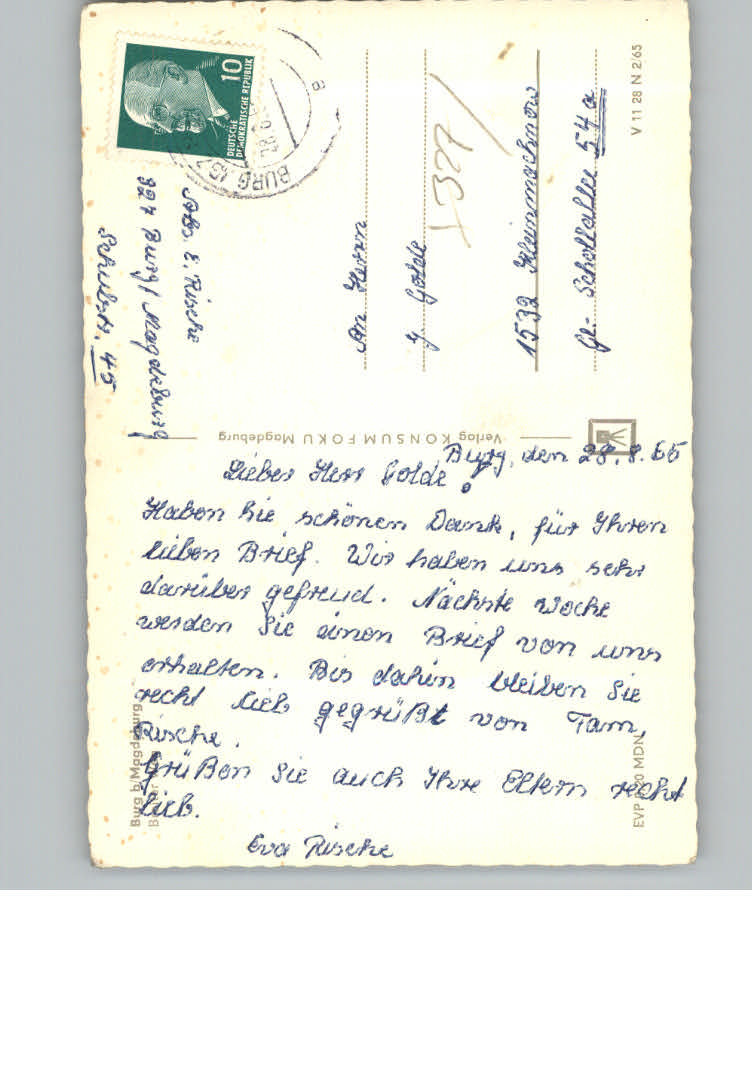 Burg, den 28.8.65
Lieber Herr Golde!
Haben Sie schönen Dank, für Ihren
lieben Brief. Wir haben uns sehr
darüber gefreud. Nächste Woche
werden Sie einen Brief von uns
erhalten. Bis dahin bleiben Sie
recht lieb gegrüßt von Fam,
Rische.
Grüßen Sie auch Ihre Eltern recht
lieb.
Eva Rische
Abs. E. Rische
327 Burg/Magdeburg
45
An Herrn
J. Golde
1532 Kleinmachnow
54a
327
10
DEUTSCHE
DEMOKRATISCHE REPUBLIK
BURG
a
V 11 28 N 2/65
Verlag KONSUM FOKU Magdeburg
Burg b/Magdeburg
EVP 0,20 MDN